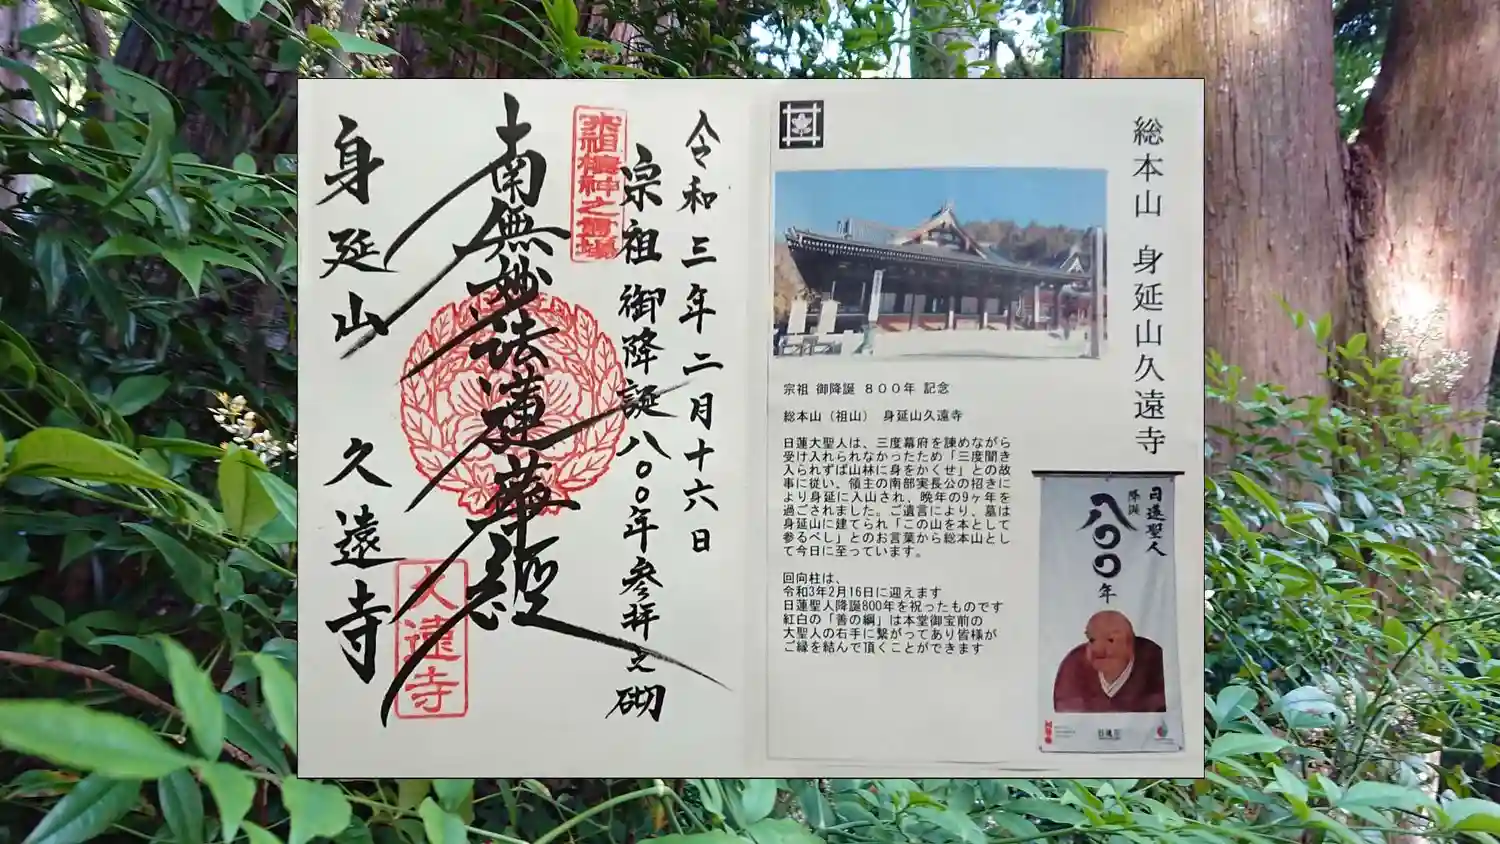 令和三年二月十六日
宗祖御降誕八〇〇年参拝之砌
宗祖棲神之霊場
南無妙法蓮華経
身延山 久遠寺
久遠寺
総本山 身延山久遠寺
宗祖 御降誕 800年 記念
総本山（祖山） 身延山久遠寺
日蓮大聖人は、三度幕府を諌めながら
受け入れられなかったため「三度聞き
入られずば山林に身をかくせ」との故
事に従い、領主の南部実長公の招きに
より身延に入山され、晩年の9ヶ年を
過ごされました。ご遺言により、墓は
身延山に建てられ「この山を本として
参るべし」とのお言葉から総本山とし
て今日に至っています。
回向柱は、
令和3年2月16日に迎えます
日蓮聖人降誕800年を祝ったものです
紅白の「善の綱」は本堂御宝前の
大聖人の右手に繋がってあり皆様が
ご縁を結んで頂くことができます
日蓮聖人
降誕
八〇〇年